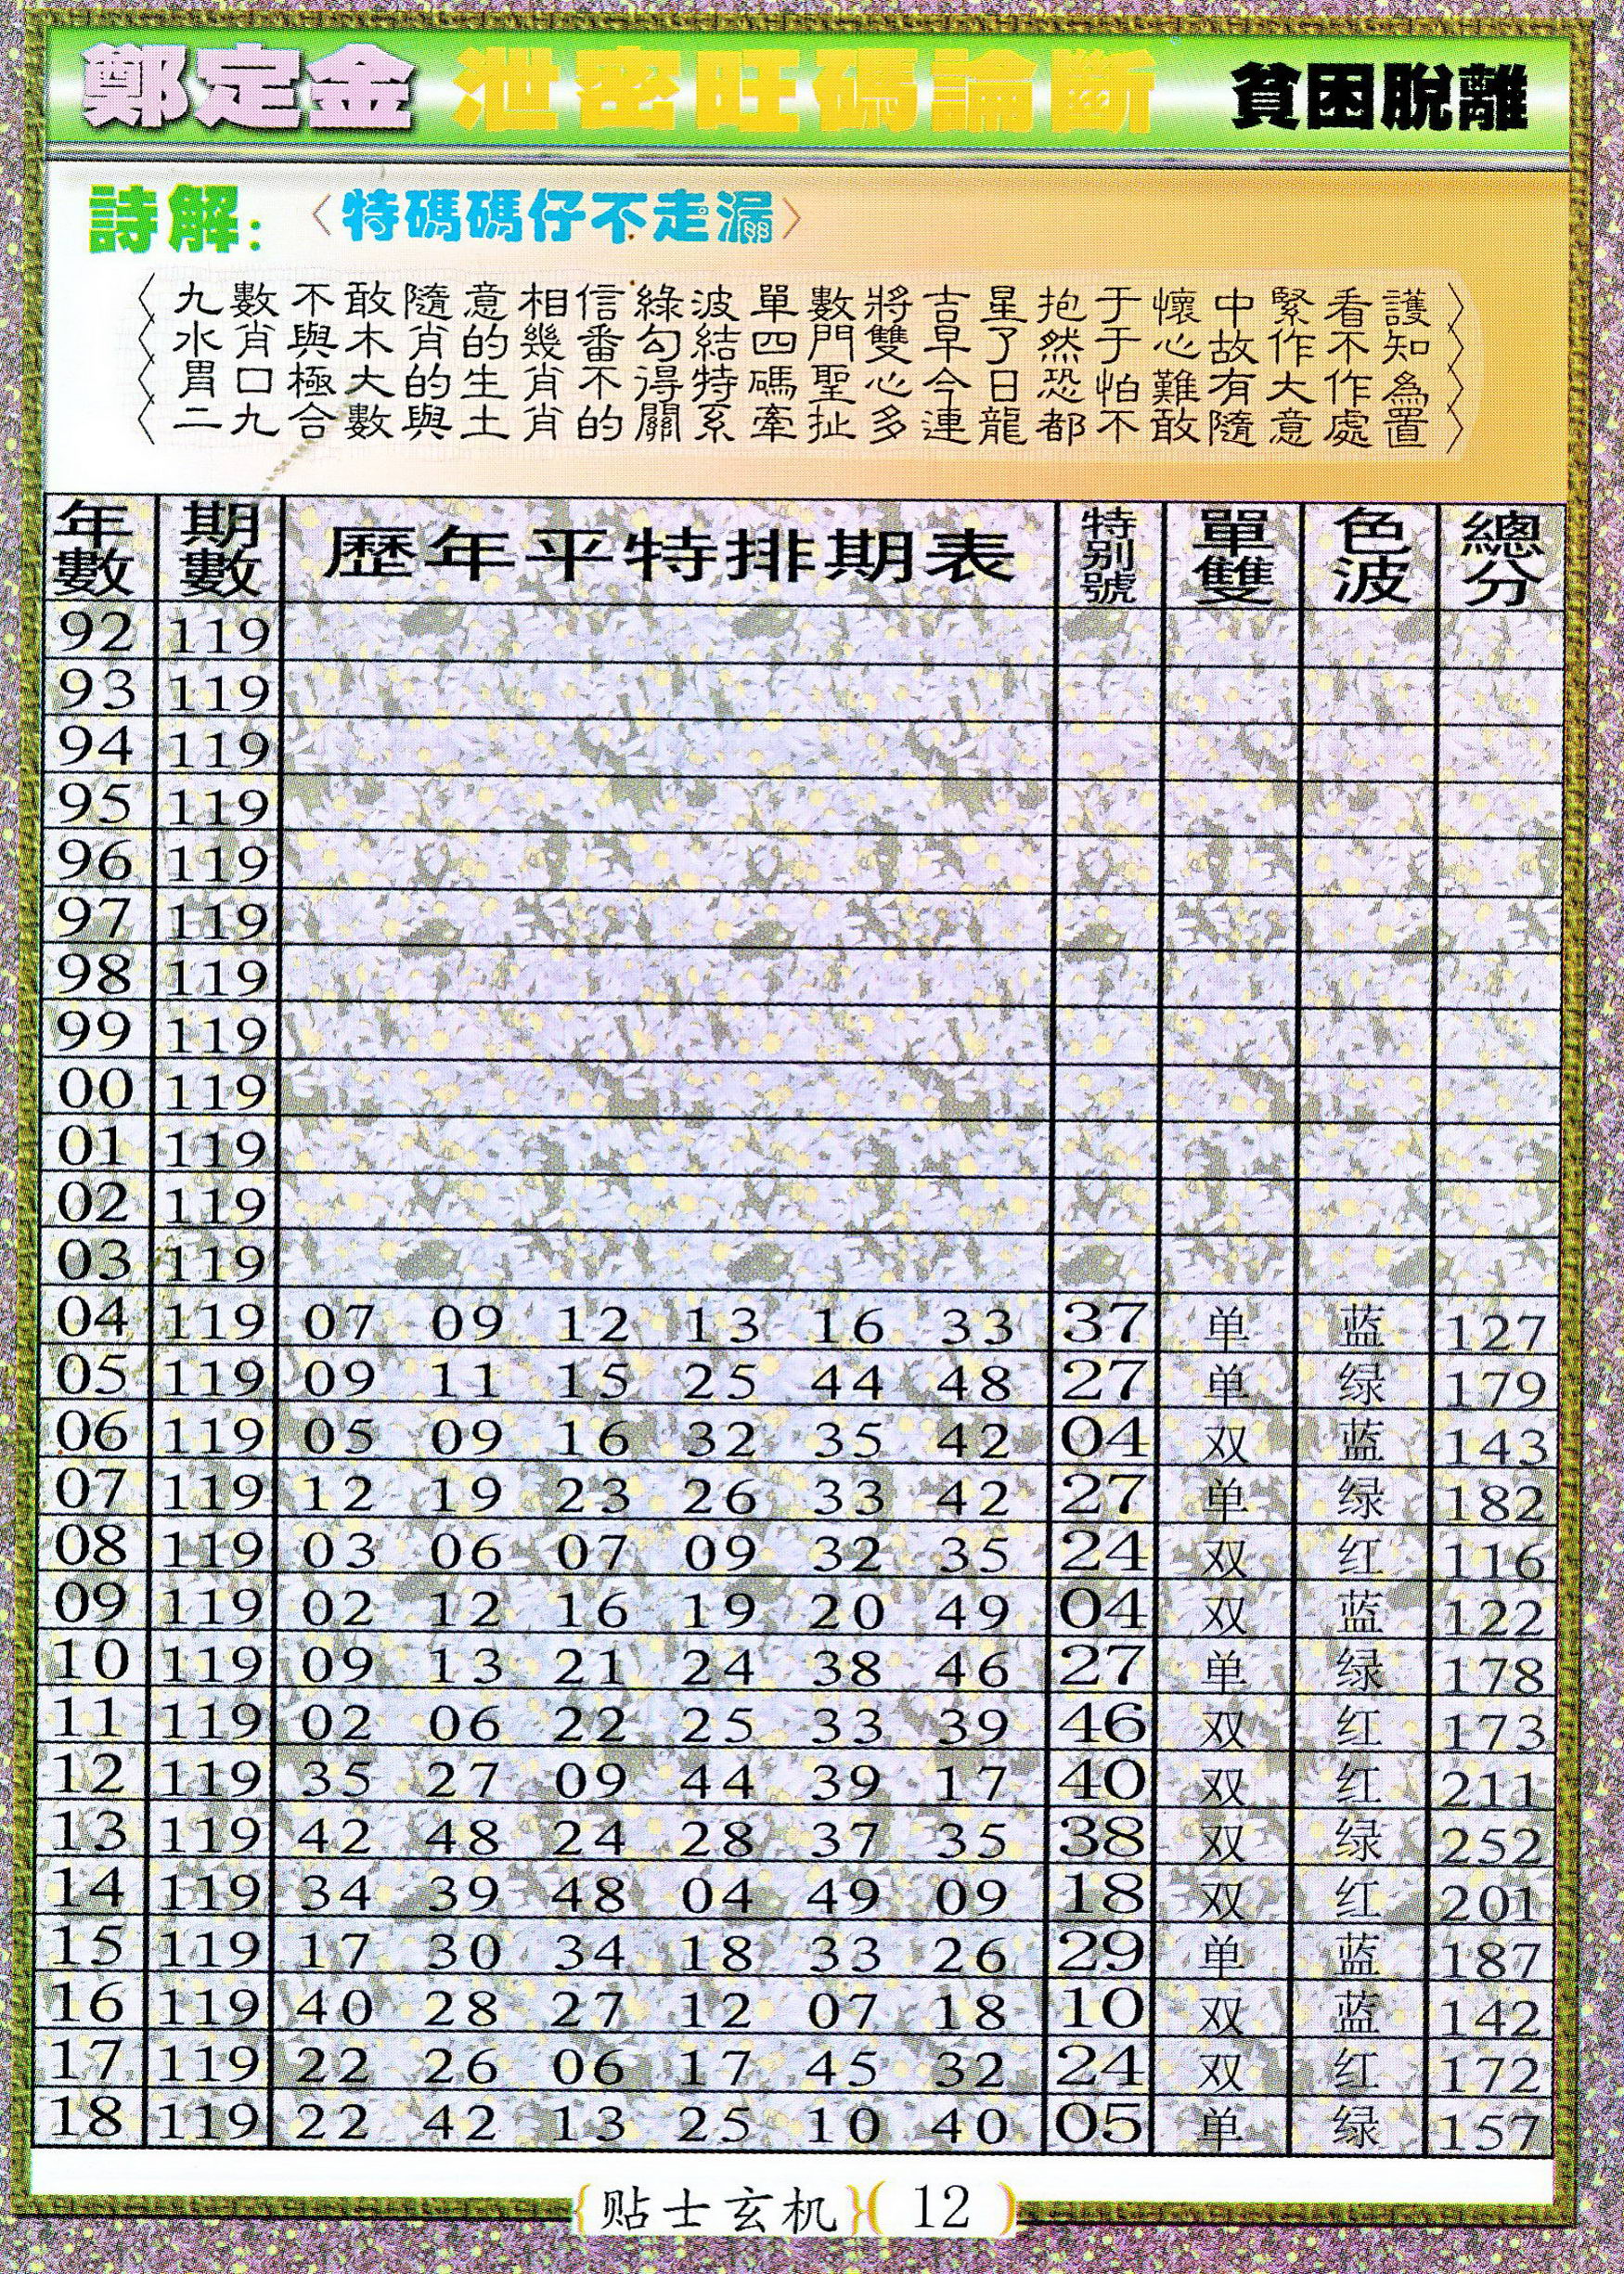 鄭定金 泄密旺碼論斷 貧困脫離
詩解: 〈特碼碼仔不走漏〉
〈九數不敢隨意相信綠波單數將吉星抱于懷中緊看護〉
〈水肖與木肖的幾番勾結四門雙早了然于心故作不知〉
〈胃口極大的生肖不得特碼聖心今日恐怕難有大作為〉
〈二九合數與土肖的關系牽扯多連龍都不敢隨意處置〉
年數 期數 歷年平特排期表 特别號 單雙 色波 總分
92 119
93 119
94 119
95 119
96 119
97 119
98 119
99 119
00 119
01 119
02 119
03 119
04 119 07 09 12 13 16 33 37 单 蓝 127
05 119 09 11 15 25 44 48 27 单 绿 179
06 119 05 09 16 32 35 42 04 双 蓝 143
07 119 12 19 23 26 33 42 27 单 绿 182
08 119 03 06 07 09 32 35 24 双 红 116
09 119 02 12 16 19 20 49 04 双 蓝 122
10 119 09 13 21 24 38 46 27 单 绿 178
11 119 02 06 22 25 33 39 46 双 红 173
12 119 35 27 09 44 39 17 40 双 红 211
13 119 42 48 24 28 37 35 38 双 绿 252
14 119 34 39 48 04 49 09 18 双 红 201
15 119 17 30 34 18 33 26 29 单 蓝 187
16 119 40 28 27 12 07 18 10 双 蓝 142
17 119 22 26 06 17 45 32 24 双 红 172
18 119 22 42 13 25 10 40 05 单 绿 157
{贴士玄机}( 12 )